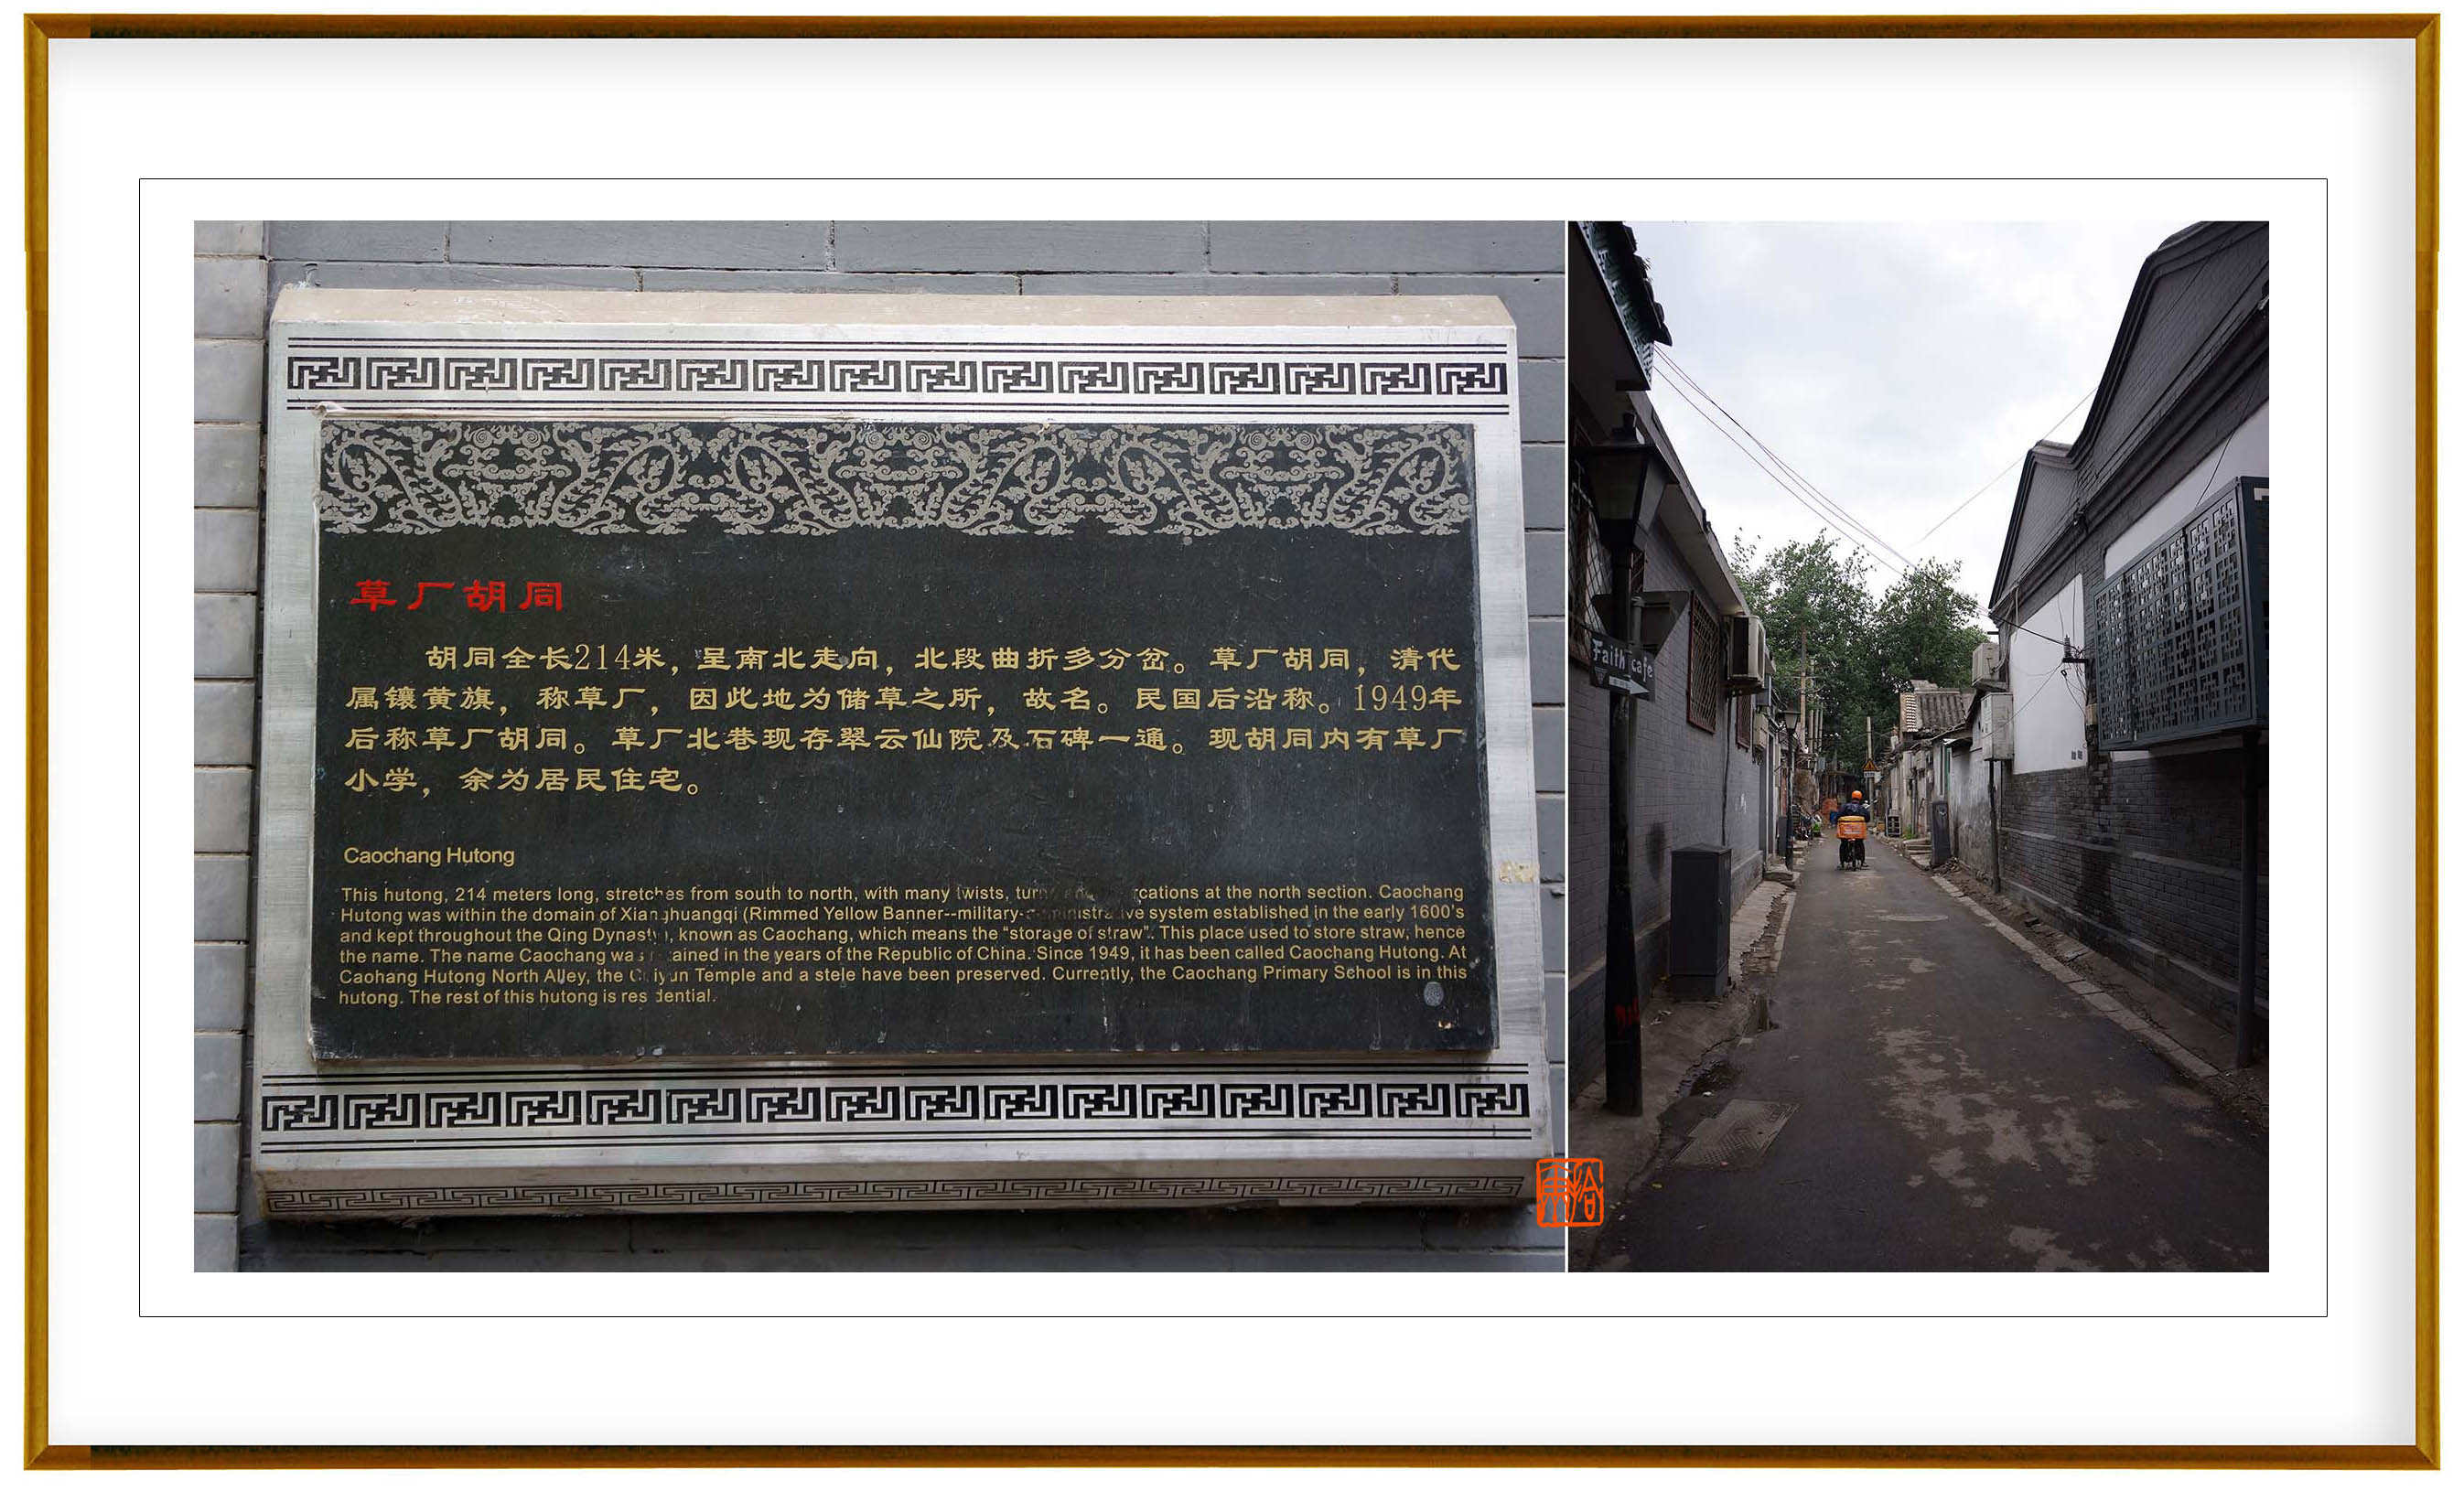 草厂胡同
胡同全长214米，呈南北走向，北段曲折多分岔。草厂胡同，清代
属镶黄旗，称草厂，因此地为储草之所，故名。民国后沿称。1949年
后称草厂胡同。草厂北巷现存翠云仙院及石碑一通。现胡同内有草厂
小学，余为居民住宅。
Caochang Hutong
This hutong, 214 meters long, stretches from south to north, with many twists, at the north section. Caochang
Hutong was within the domain of Xianghuangqi (Rimmed Yellow Banner--military-administrative system established in the early 1600's
and kept throughout the Qing Dynasty), known as Caochang, which means the "storage of straw". This place used to store straw, hence
the name. The name Caochang was retained in the years of the Republic of China. Since 1949, it has been called Caochang Hutong. At
Caohang Hutong North Alley, the Cuiyun Temple and a stele have been preserved. Currently, the Caochang Primary School is in this
hutong. The rest of this hutong is residential.
Faith cafe